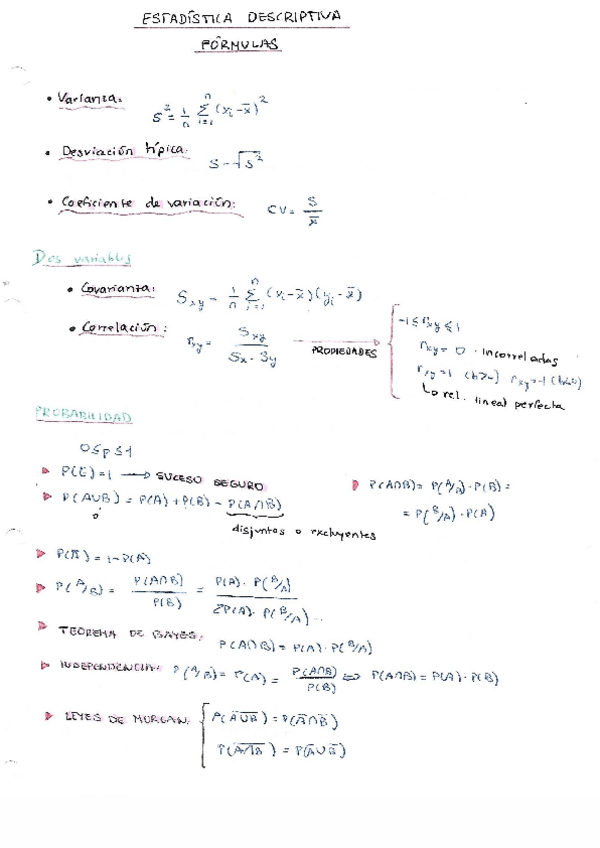 ESTADÍSTICA DESCRIPTIVA
FÓRMULAS
• Varianza: s² = 1/n Σ_{i=1}^{n} (xᵢ - x̄)²
• Desviación típica: S = √s²
• Coeficiente de variación: CV = S/x̄
Dos variables
• Covarianza: S_xy = 1/n Σ_{i=1}^{n} (xᵢ - x̄)(yᵢ - x̄)
• Correlación: r_xy = S_xy / (Sx · Sy) → PROPIEDADES
-1 ≤ r_xy ≤ 1
r_xy = 0 · incorreladas
r_xy = 1 r_xy = -1
↳ rel. lineal perfecta
PROBABILIDAD
0 ≤ p ≤ 1
▷ P(E) = 1 → SUCESO SEGURO
▷ P(A∪B) = P(A) + P(B) - P(A∩B)
disjuntos o excluyentes
▷ P(A∩B) = P(A/B) · P(B) =
= P(B/A) · P(A)
▷ P(Ā) = 1 - P(A)
▷ P(A/B) = P(A∩B) / P(B) = P(A) · P(B/A) / ΣP(A) · P(B/A)...
▷ TEOREMA DE BAYES: P(A∩B) = P(A) · P(B/A)
▷ INDEPENDENCIA: P(A/B) = P(A) = P(A∩B) / P(B) ⇔ P(A∩B) = P(A) · P(B)
▷ LEYES DE MORGAN: P(A̅∪̅B̅) = P(Ā∩B̄)
P(A̅∩̅B̅) = P(Ā∪B̄)